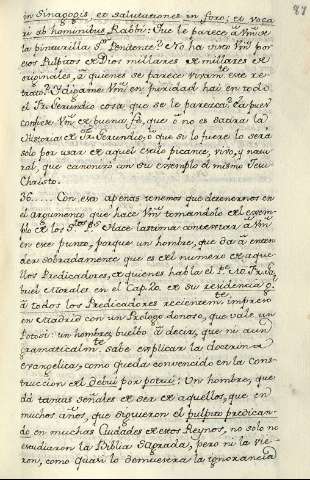 87
in Sinagogis, et salutationes in foro; et voca
ri ab hominibus Rabbi: Que le parece à Vm̃ se
la pinturilla Sr. Penitente? No ha visto Vm̃ por
esos Pulpitos de Dios millares de millares de
originales, à quienes se parece vivamte este re
trato? Y digame Vm̃ en puridad hai en todo
el Fr. Gerundio cosa que se le parezca? La pues
confiese Vm̃ de buena fè, que ò no es satira la
Historia de Fr. Gerundio; ò que si lo fuere lo serà
solo por usar de aquel estilo picante, vivo, y natu
ral, que canonizò con su exemplo el mismo Jesu
Christo.
36..... Con esa apenas tenemos que detenernos en
el argumento que hace Vm̃ tomandolo del exem
plo de los Stos Ps. Hace lastima conversar à Vm̃
en este punto, porque un hombre, que da à enten
der sobradamente que es del numero de aque
llos Predicadores, de quienes habla el P. Mo Fr. Ga
briel Morales en el Cap. 20. de su residencia
à todos los Predicadores recientemte impreso
en Madrid con un Prologo donoso, que vale un
Potosi: un hombre, buelbo à decir, que ni aun
gramaticalmte sabe explicar la doctrina
evangelica, como queda convencido en la cons-
truccion del debui por potui: Un hombre, que
dà tantas señales de ser de aquellos, que en
muchos años, que siguieron el pulpito predican-
do en muchas Ciudades de estos Reynos, no solo no
estudiaron la Biblia Sagrada, pero ni la vie-
ron, como quasi lo demuestra la ignorancia